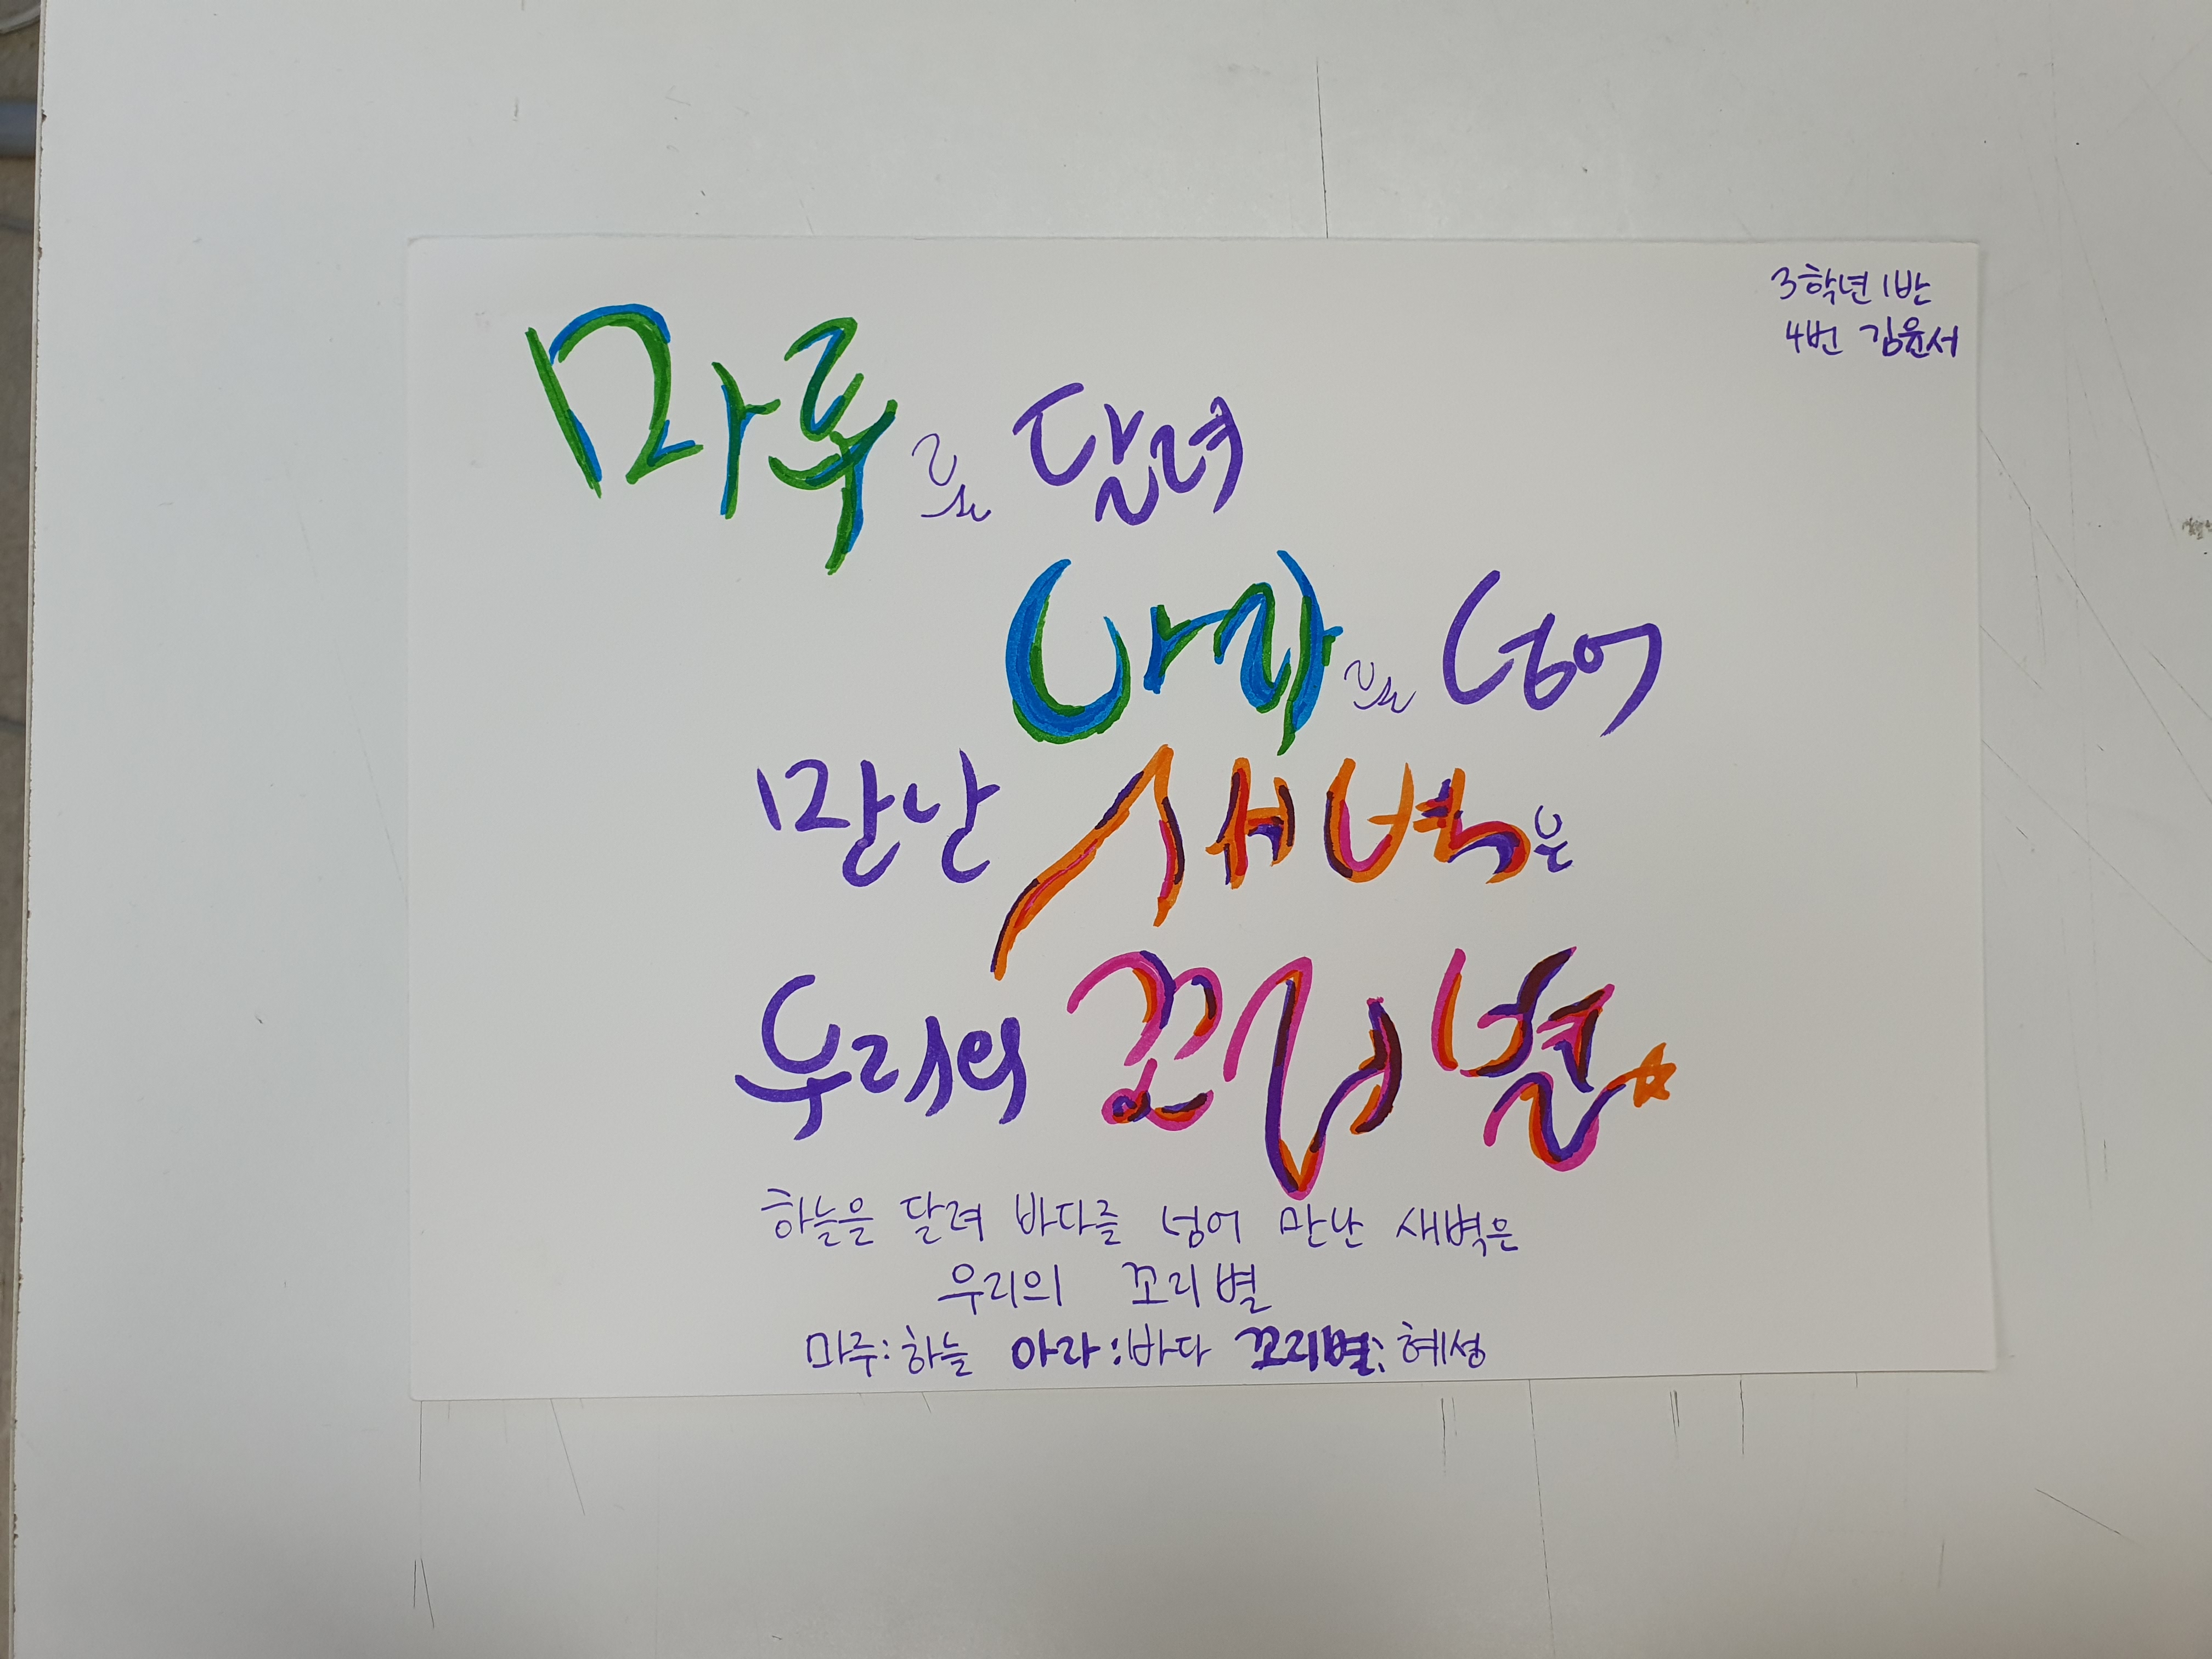 3학년 1반
4번 김윤서
마루로 달려
아라로 넘어
만난 새벽은
우리의 꼬리별
하늘을 달려 바다를 넘어 만난 새벽은
우리의 꼬리별
마루:하늘 아라:바다 꼬리별:혜성